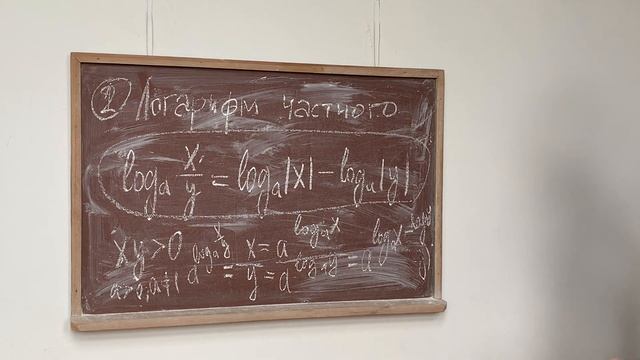 ② Логарифм частного
logₐ x/y = logₐ|x| − logₐ|y|
xy>0 a^(logₐ x/y) = x/y = a^(logₐx) / a^(logₐy) = a^(logₐx − logₐy)
a>0, a≠1